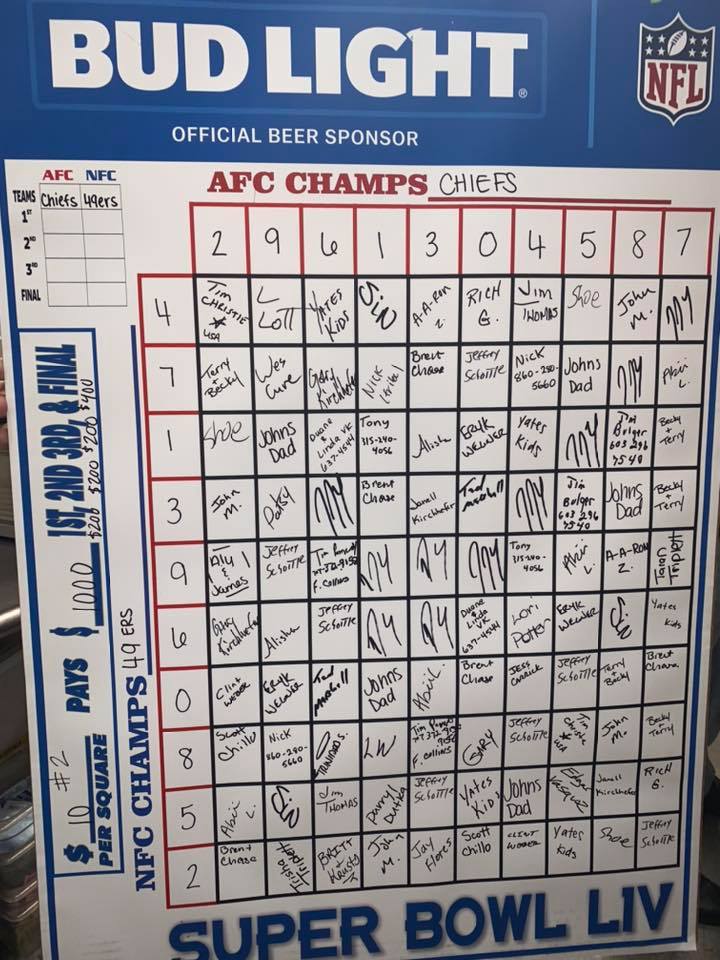 BUD LIGHT®
OFFICIAL BEER SPONSOR
NFL
AFC NFC
TEAMS Chiefs 49ers
1ST
2ND
3RD
FINAL
AFC CHAMPS CHIEFS
2 9 6 1 3 0 4 5 8 7
4 Tim CHRISTIE USA L LOTT YATES KIDS SiN A-A-Ron Z. RICH G. Jim THOMAS Shoe John M.
7 Terry + Becky Wes Cure Gary Kirchhefer NICK Brent Chase Jeffrey Schottle Nick 860-280-5660 Johns Dad L.
1 Shoe Johns Dad Duane & Linda VK 637-4544 Tony 315-240-4056 Alisha ERYK WELNER Yates Kids Jim Bulger 603 296 7540 Becky + Terry
3 John M. Patsy Brent Chase Janell Kirchhefer Jim Bulger 603 296 7540 Johns Dad Becky + Terry
9 Ally & James Jeffrey Schottle Tim F. Collins Tony 315-240-4056 L. A-A-RON Z. Triplett
6 Gary Kirchhefer Alisha Jeffrey Schottle Duane & Linda VK 637-4544 Lori Potter ERYK WELNER SiN Yates Kids
0 Clint WEBER ERYK WELNER Johns Dad Brent Chase JESS CARRICK Jeffrey Schottle Terry + Becky Brent Chase
8 Scott Chillo Nick 860-280-5660 LW Tim F. Collins GARY Jeffrey Schottle Tim Christie USA John M. Becky + Terry
5 L. SiN Jim THOMAS Darryl Dutka Jeffrey Schottle YATES KIDS Johns Dad Vasquez Janell Kirchhefer RICH G.
2 Brent Chase Trisha Triplett BRITT + Krusty John M. Jay Flores Scott Chillo CLINT WEBER Yates Kids Shoe Jeffrey Schottle
NFC CHAMPS 49ERS
#2
$ 10 PER SQUARE PAYS $ 1000 1ST, 2ND 3RD, & FINAL
$200 $200 $200 $400
SUPER BOWL LIV